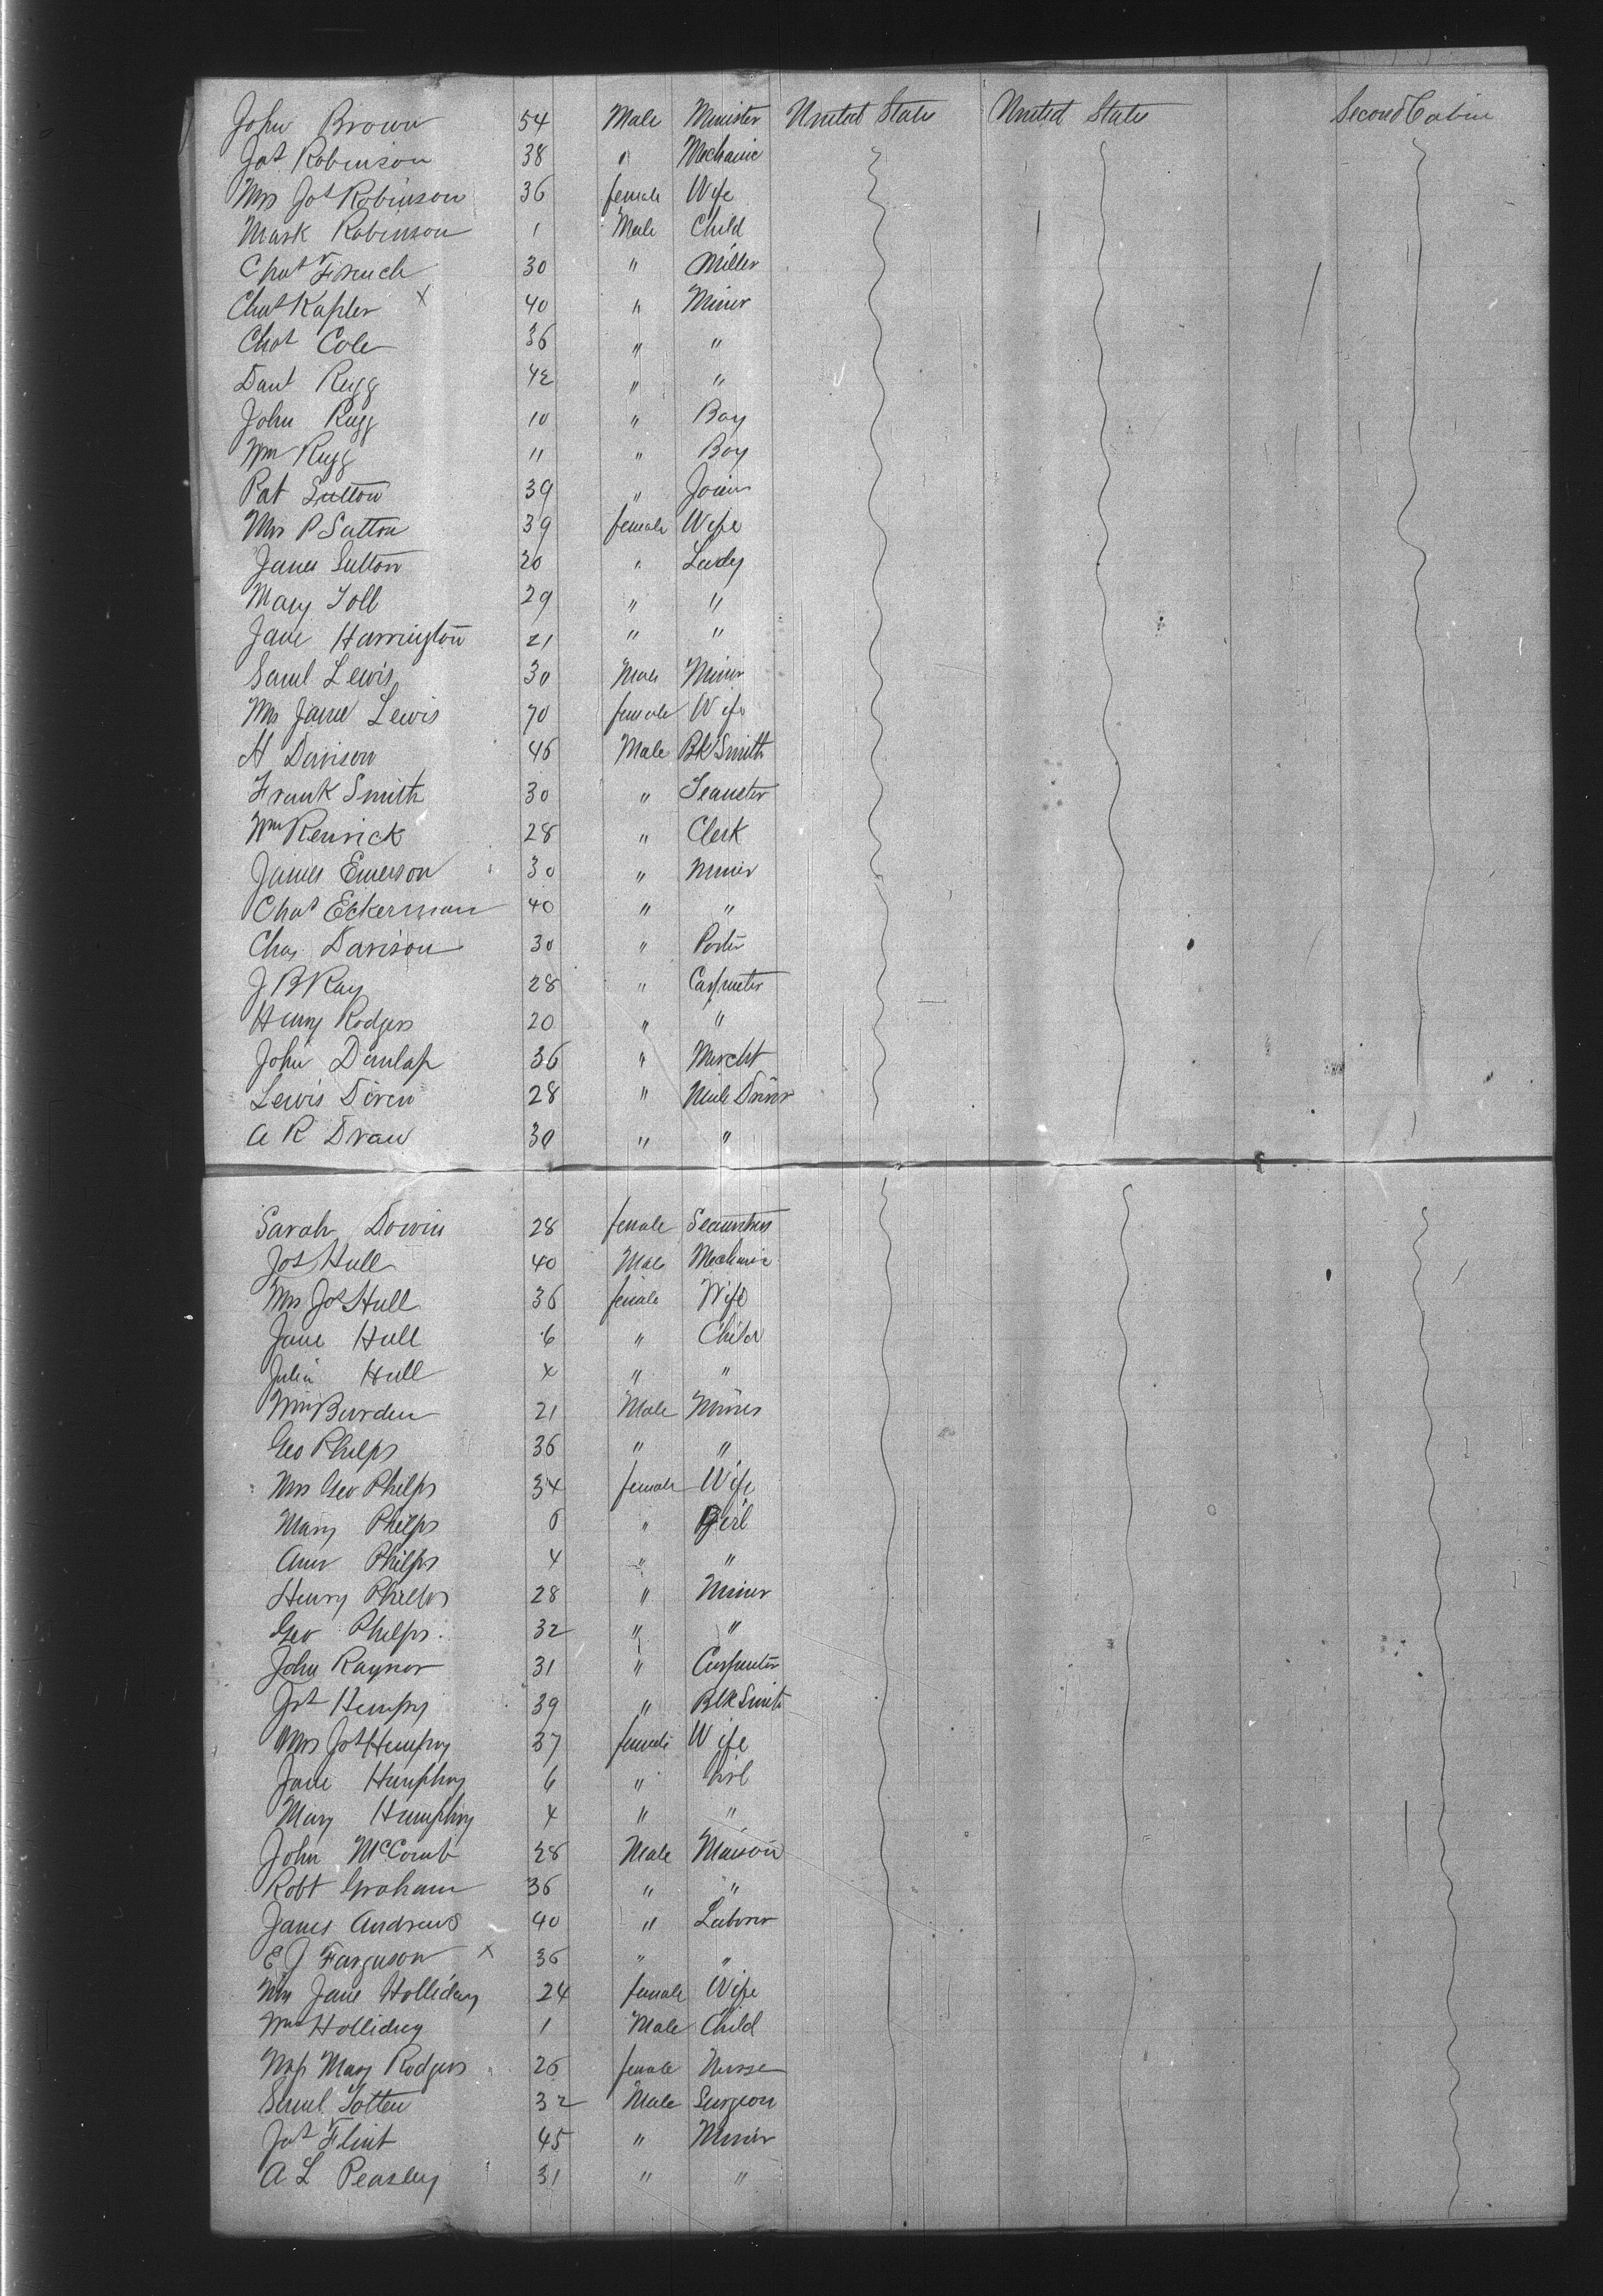 John Brown 54 Male Minister United States United States Second Cabin
Jos Robinson 38 " Mechanic
Mrs Jos Robinson 36 female Wife
Mark Robinson 1 Male Child
Chas French 30 " Miller
Chas Kapler x 40 " Miner
Chas Cole 36 " "
Danl Rugg 42 " "
John Rugg 10 " Boy
Wm Rugg 11 " Boy
Pat Sutton 39 " Joiner
Mrs P Sutton 39 female Wife
James Sutton 20 " Lady
Mary Toll 29 " "
Jane Harrington 21 " "
Saml Lewis 30 Male Miner
Mrs Jane Lewis 70 female Wife
H Davison 46 Male Bk Smith
Frank Smith 30 " Teamster
Wm Renrick 28 " Clerk
James Emerson 30 " Miner
Chas Eckerman 40 " "
Chas Davison 30 " Porter
J. B Ray 28 " Carpenter
Henry Rodgers 20 " "
John Dunlap 36 " Mercht
Lewis Doren 28 " Mule Driver
A R Drau 30 " "
Sarah Dowin 28 female Seamstress
Jos Hull 40 Male Mechanic
Mrs Jos Hull 36 female Wife
Jane Hull 6 " Child
Julia Hull 4 " "
Wm Burden 21 Male Miner
Geo Phelps 36 " "
Mrs Geo Phelps 34 female Wife
Mary Phelps 6 " Girl
Ann Phelps 4 " "
Henry Phelps 28 " Miner
Geo Phelps 32 " "
John Raynor 31 " Carpenter
Jos Hempy 39 " Blk Smith
Mrs Jos Humpry 37 female Wife
Jane Humphry 6 " Girl
Mary Humphry 4 " "
John McComb 28 Male Maison
Robt Graham 36 " "
James Andrews 40 " Laborer
E J Farguson x 36 " "
Mrs Jane Holliday 24 female Wife
Wm Holliday 1 Male Child
Miss Mary Rodgers 26 female Nurse
Saml Totten 32 Male Surgeon
Jos Flint 45 " Miner
A L Peasley 31 " "